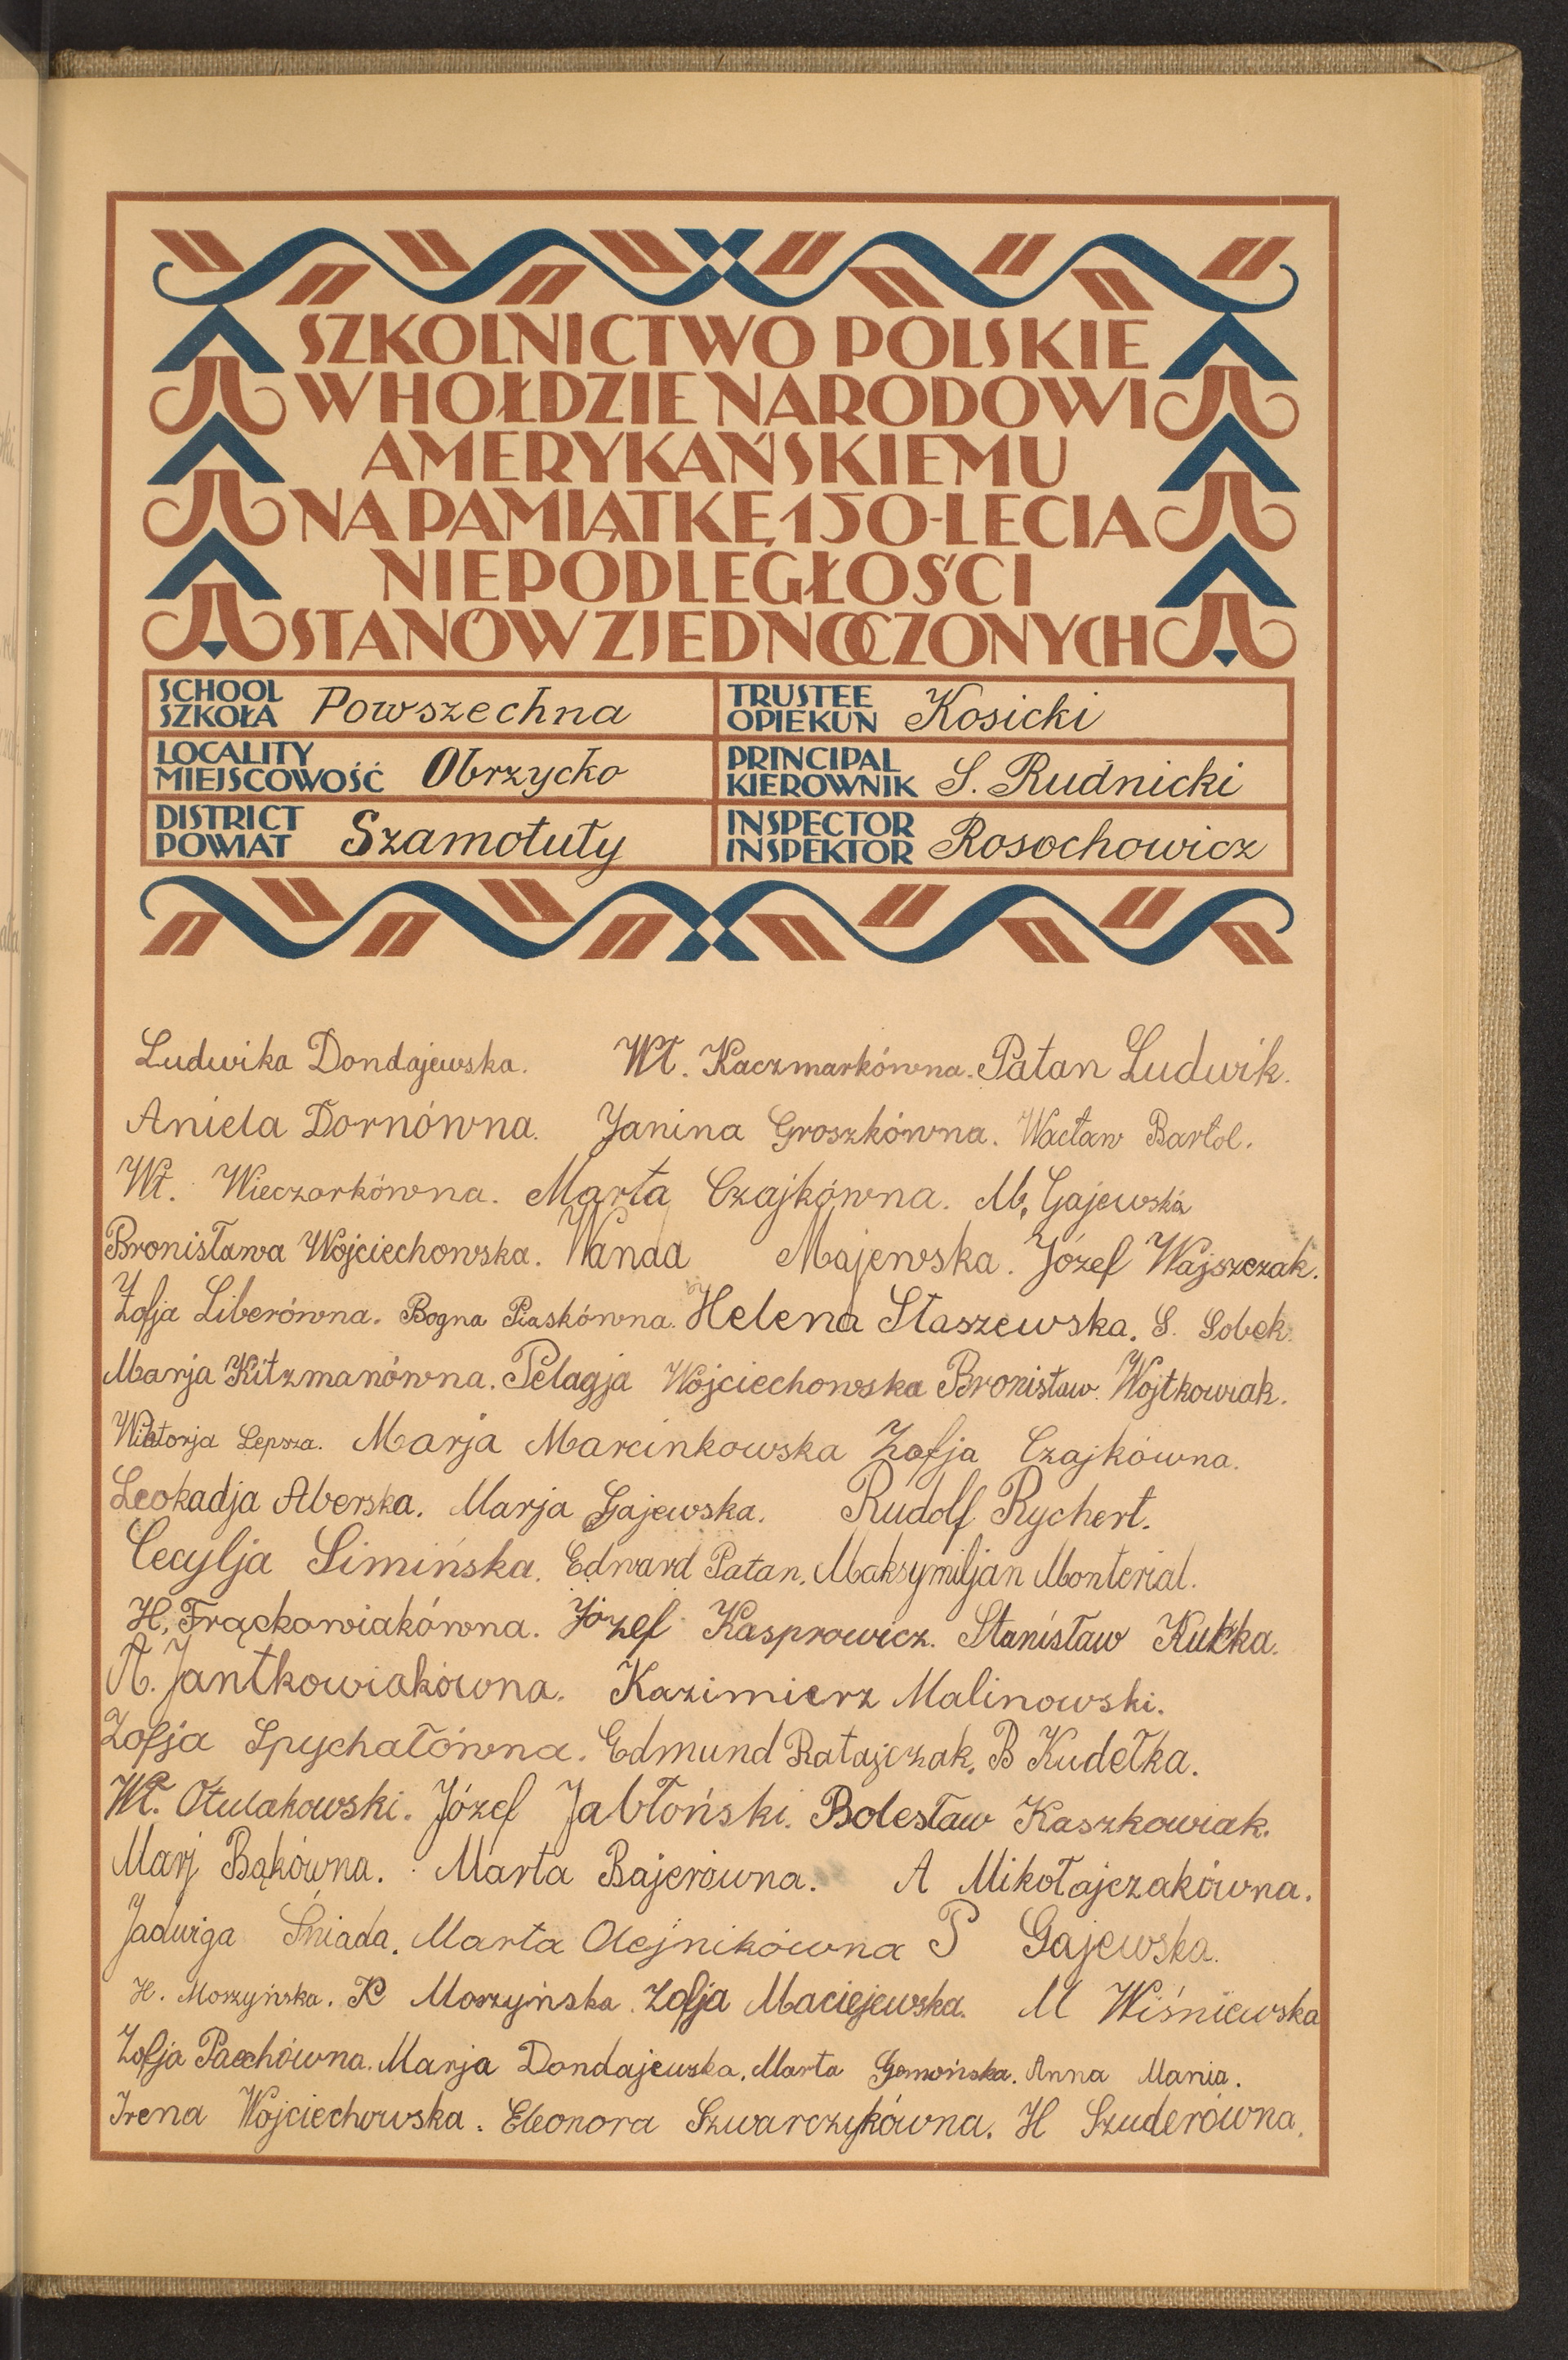 SZKOLNICTWO POLSKIE
W HOŁDZIE NARODOWI
AMERYKAŃSKIEMU
NA PAMIĄTKĘ 150-LECIA
NIEPODLEGŁOŚCI
STANÓW ZJEDNOCZONYCH
SCHOOL
SZKOŁA Powszechna
TRUSTEE
OPIEKUN Kosicki
LOCALITY
MIEJSCOWOŚĆ Obrzycko
PRINCIPAL
KIEROWNIK S. Rudnicki
DISTRICT
POWIAT Szamotuły
INSPECTOR
INSPEKTOR Rosochowicz
Ludwika Dondajewska. Wł. Kaczmarkówna. Patan Ludwik.
Aniela Dornówna. Janina Groszkówna. Wacław Bartol.
Wł. Wieczorkówna. Marta Czajkówna. M. Gajewska
Bronisława Wojciechowska. Wanda Majewska. Józef Wajszczak.
Zofja Liberówna. Bogna Piaskówna. Helena Staszewska. S. Sobek.
Marja Kitzmanówna. Pelagja Wojciechowska Bronisław Wojtkowiak.
Wiktorja Lepsza. Marja Marcinkowska Zofja Czajkówna.
Leokadja Aberska. Marja Gajewska. Rudolf Rychert.
Cecylja Simińska. Edward Patan. Maksymiljan Monterial.
H. Frąckowiakówna. Józef Kasprowicz. Stanisław Kukka.
A. Jantkowiakówna. Kazimierz Malinowski.
Zofja Spychałówna. Edmund Ratajczak. B Kudełka.
Wł. Otulakowski. Józef Jabłoński. Bolesław Kaszkowiak.
Marj Bąkówna. Marta Bajerówna. A Mikołajczakówna.
Jadwiga Śniada. Marta Olejnikówna P Gajewska.
H. Morzyńska. K Morzyńska. Zofja Maciejewska. M Wiśniewska
Zofja Paechówna. Marja Dondajewska. Marta Gomońska. Anna Mania.
Irena Wojciechowska. Eleonora Szwarczykówna. H Szuderówna.